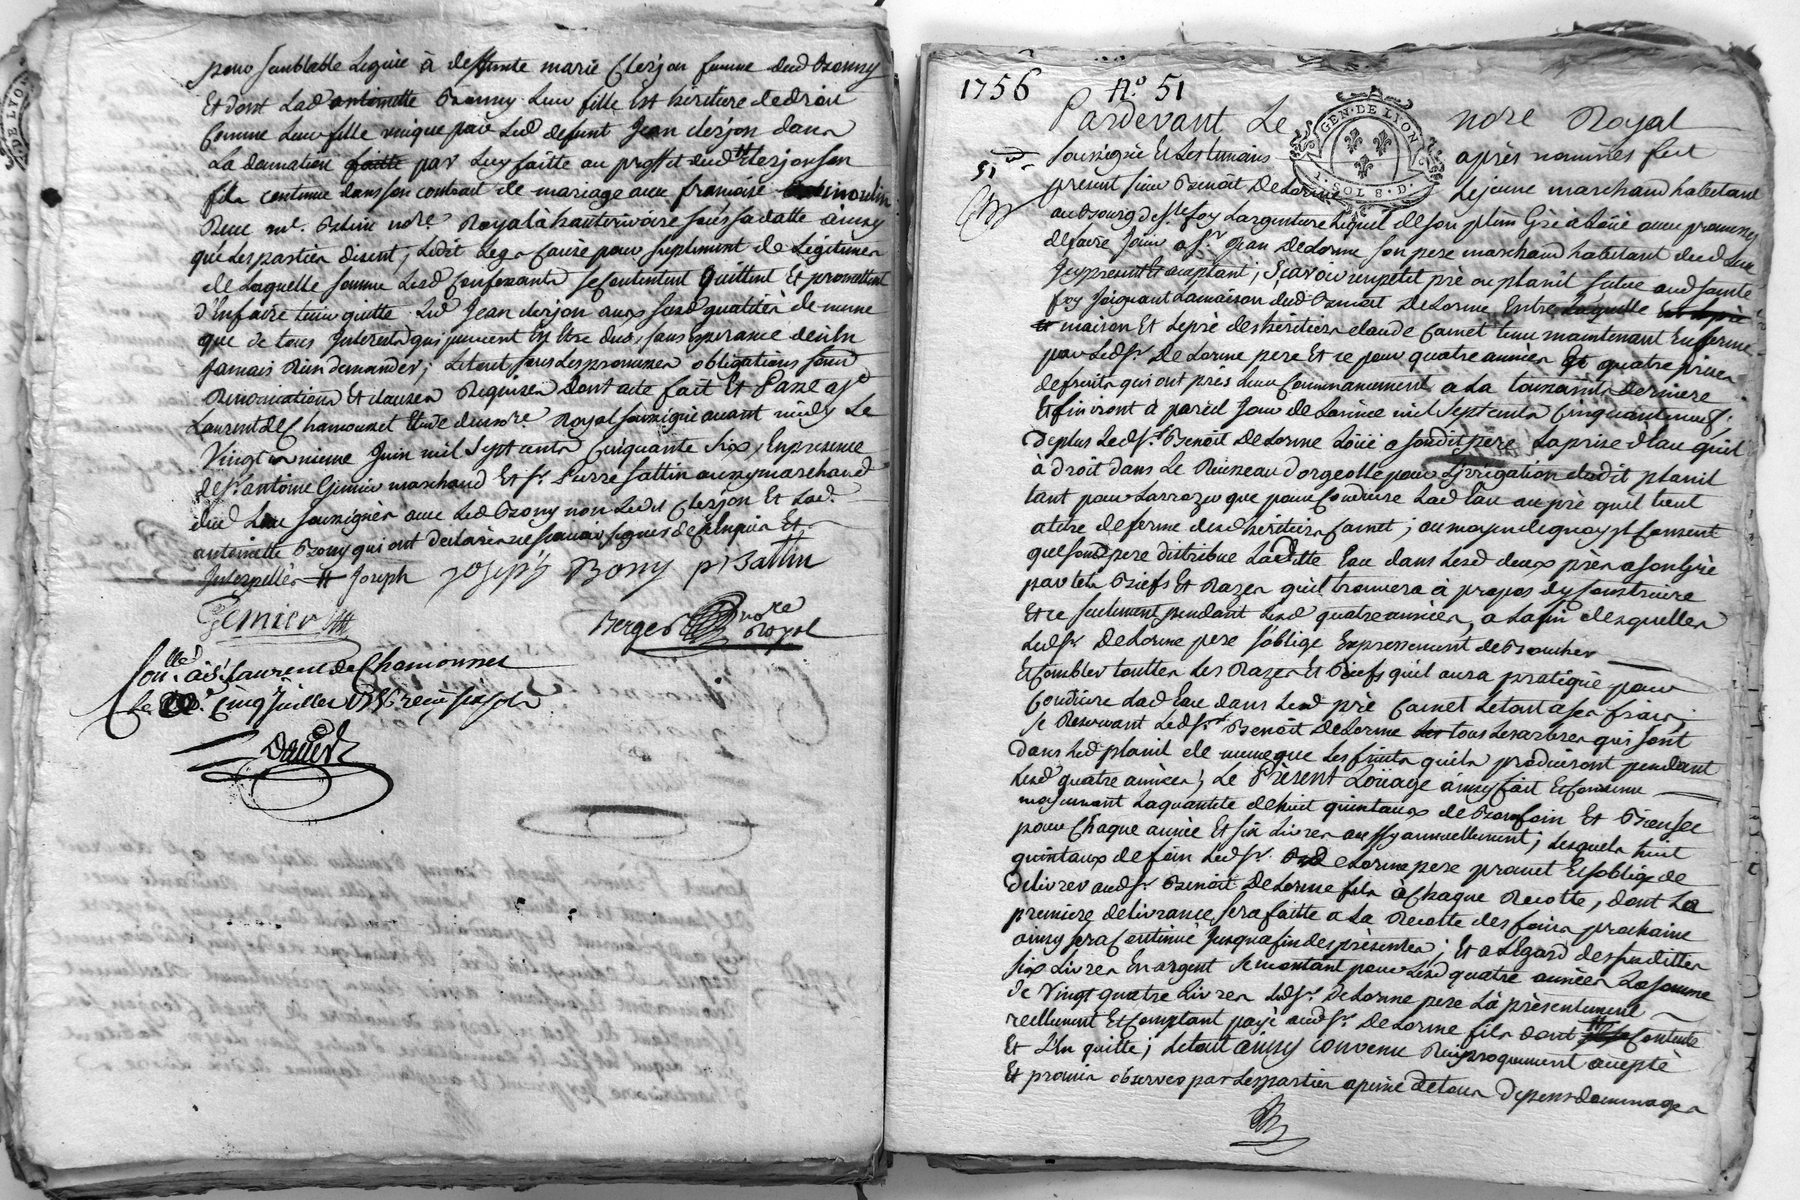 pour semblable Leguée à deffunte marie Clerjon femme dud Bonny
Et dont Lad antoinette Bonny Leur fille Est héritiere de droit
Comme Leur fille unique par Led defunt Jean clerjon dans
La donnation faitte par Luy faitte au proffit dud Clerjon son
fils contenue dans son contrait de mariage avec francoise moulin
Reçue me. notre. Royal à hauterivoire sous sa datte ainsy
que Les parties disent, Ledit Legs Causé pour suplement de Legitime
de Laquelle somme Lesd Confessants se contentent quittent Et promettent
d'En faire tenir quitte Led Jean clerjon aux susd qualités de meme
que de tous Interests qui peuvent En Etre dus, sans Esperance de n'En
Jamais Rien demander; Le tout sous Les promesses obligations soumd
Renonciations Et clauses Requises Dont acte fait Et Passé a St
Laurent de Chamousset Etude du notre Royal soussigné avant midy Le
Vingt unieme Juin mil sept cents Cinquante Six, En presence
de sr. antoine Gemier marchand Et sr. Pierre Battin aussy marchand
dud Lieu soussignés avec Led Bony non Ledit Clerjon Et Lad.
antoinette Bony qui ont declaré ne scavoir signer de Enquis Et
Interpellés # Joseph Joseph Bony p Battin
Gemier
Berger notre Royal
Conllé à St Laurent de Chamousset
Le Cinq Juillet 1756 reçu six sols
1756 No. 51
Pardevant Le notre Royal
GEN. DE LYON
1. SOL 8. D.
soussigné Et Les temoins après nommés fut
51
present sieur Benoît Delorme Le jeune marchand habitant
au Bourg de Ste foy Largentiere Lequel de son plein Gré a Loüé avec promesse
de faire Jouir a sr. Jean Delorme son pere marchand habitant dud Lieu
Icy present Et acceptant; scavoir un petit pré ou planil situé aud sainte
foy Joignant La maison dud Benoît Delorme Entre Laquelle
maison Et Le pré des héritiers claude Carnet tenu maintenant En ferme
par Led sr. Delorme pere Et ce pour quatre années Et quatre prises
de fruits qui ont pris Leur Commancement a La toussaints derniere
Et finiront à pareil Jour de L'année mil sept cents Cinquante neuf,
De plus Led sr. Benoît Delorme Loüe a sondit pere La prise d'Eau qu'il
à droit dans Le Ruisseau d'orgeolle pour L'irrigation dudit planil
tant pour L'arrozer que pour Conduire Lad Eau au pré qu'il tient
a titre de ferme desd héritiers Carnet; au moyen de quoy il Consent
que sond pere distribue Laditte Eau dans Lesd deux prés a son Gré
par tels Biefs Et Razes qu'il trouvera à propos d'y Construire
Et ce seulement pendant Lesd quatre années, a La fin desquelles
Led sr. Delorme pere s'oblige Expressement de Boucher
Et Combler touttes Les Razes Et Biefs qu'il aura pratiqué pour
Conduire Lad Eau dans Led pré Carnet Le tout a ses frais;
se Reservant Led sr. Benoît Delorme tous Les arbres qui sont
dans Led planil de meme que Les fruits qu'ils produiront pendant
Lesd quatre années; Le Présent Loüage ainsy fait Et Convenu
moyennant La quantité de huit quintaux de Bon foin Et Bien sec
pour Chaque année Et six Livres aussy annuellement; Lesquels huit
quintaux de foin Led sr. Delorme pere promet Et s'oblige de
delivrer aud sr. Benoît Delorme fils à Chaque Recolte, dont La
premiere delivrance sera faitte a La Recolte des foins prochaine
ainsy sera Continué Jusqu'a fin des présentes; Et a L'Egard desdittes
six Livres En argent se montant pour Lesd quatre années La somme
de Vingt quatre Livres Led sr. Delorme pere L'à présentement
reellement Et Comptant payé aud sr. Delorme fils dont Contente
Et L'En quitte; Le tout ainsy convenu Reciproquement accepté
Et promis observer par Les parties a peine de tous Depens dommages